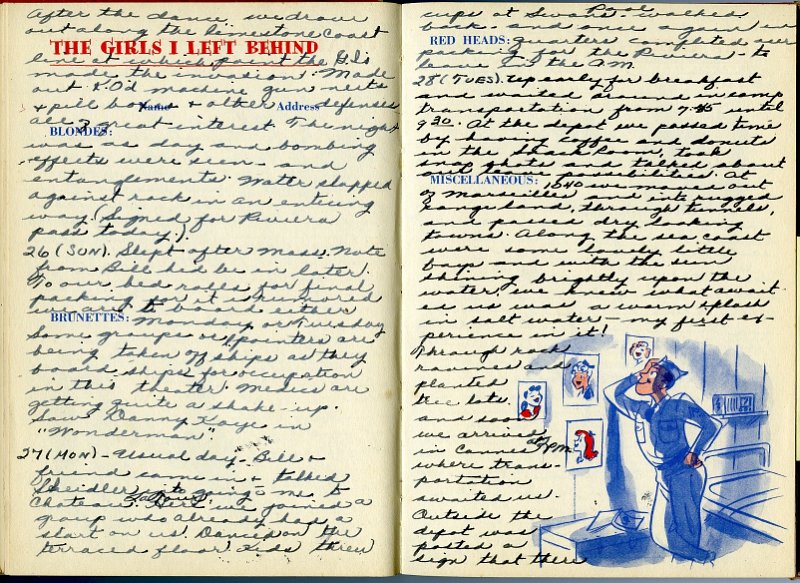 After the dance we drove
out along the limestone coast
THE GIRLS I LEFT BEHIND
line at which point the G.I.s
made the invasion. Made
out K.O'd machine gun nests
+ pill boxes + other defenses
Name Address
all of great interest. The night
BLONDES:
was as day and bombing
effects were seen - and
entanglements. Water slapped
against rock in an enticing
way. (Signed for Riviera
pass today.)
26 (SUN). Slept after Mass. Note
from Bill he'd be in later.
To our bed rolls for final
packing for it is rumored
we are to board either
BRUNETTES: Monday or Tuesday
Some groups or pointers are
being taken off ships as they
board ships for occupation
in this theater. Medics are
getting quite a shake-up.
Saw Danny Kaye in
"Wonderman".
27 (MON) - Usual day - Bill +
friend came in + talked
Sheidler into going + me to
Chateau. Here we joined a
group who already had a
start on us. Danced on the
terraced floor. Kids threw
cups at Swans. walked
Pool
back - and once again in
RED HEADS: quarters completed our
packing for the Riviera - to
leave in the A.M.
28 (TUES). Up early for breakfast
and waited around in camp
transportation from 7:45 until
9:30. At the depot we passed time
by having coffee and donuts
in the Snack Room, took
snap shots and talked about
possibilities. At
MISCELLANEOUS: 1040 we moved out
of Marseilles and into rugged
range lands, through tunnels,
and passed dry looking
towns. Along the sea coast
were some lovely little
bays and with the sun
shining brightly upon the
water, we knew what await
ed us was a warm splash
in salt water - my first ex-
perience in it!
Through rock
ravines and
planted
tree lots
and soon
we arrived
in Cannes at PM.
where trans-
portation
awaited us.
Outside the
depot was
posted a
sign that there